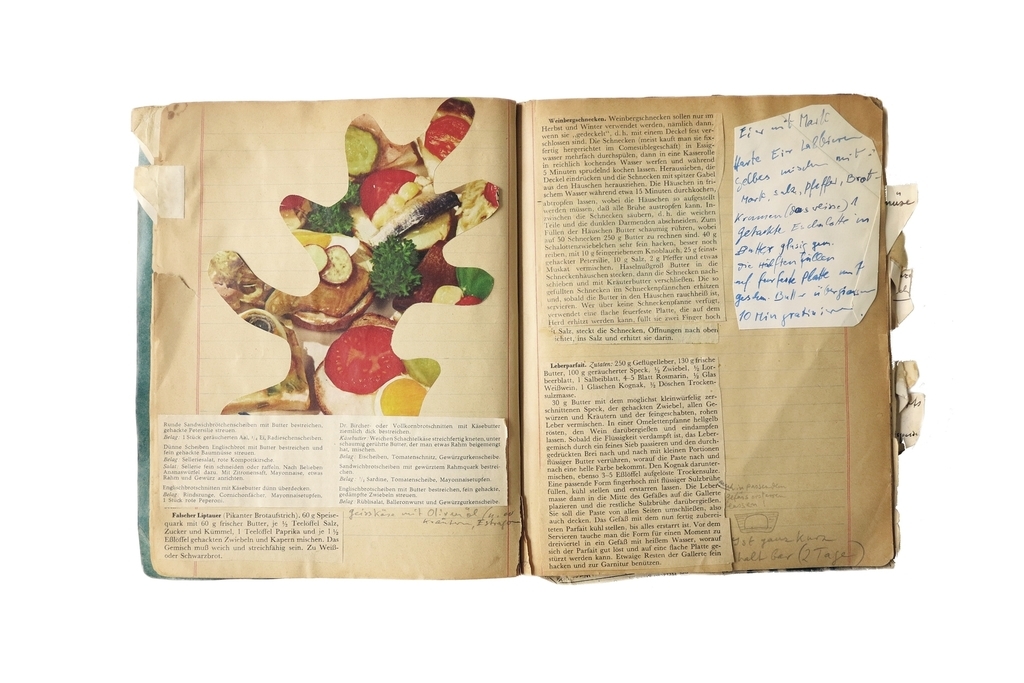 Runde Sandwichbrötchenscheiben mit Butter bestreichen,
gehackte Petersilie streuen.
Belag: 1 Stück geräucherten Aal, Ei, Radieschenscheiben.
Dünne Scheiben Englischbrot mit Butter bestreichen und
fein gehackte Baumnüsse streuen.
Belag: Selleriesalat, rote Kompottkirsche.
Salat: Sellerie fein schneiden oder raffeln. Nach Belieben
Ananaswürfel dazu. Mit Zitronensaft, Mayonnaise, etwas
Rahm und Gewürz anrichten.
Englischbrotschnitten mit Käsebutter dünn überdecken.
Belag: Rindszunge, Cornichonfächer, Mayonnaisetupfen,
1 Stück rote Peperoni.
Dr. Bircher- oder Vollkornbrotschnitten mit Käsebutter
ziemlich dick bestreichen.
Käsebutter: Weichen Schachtelkäse streichfertig kneten, unter
schaumig gerührte Butter, der man etwas Rahm beigemengt
hat, mischen.
Belag: Eischeiben, Tomatenschnitz, Gewürzgurkenscheibe.
Sandwichbrotschnitten mit gewürztem Rahmquark bestrei-
chen.
Belag: Sardine, Tomatenscheibe, Mayonnaisetupfen.
Englischbrotscheiben mit Butter bestreichen, fein gehackte,
gedämpfte Zwiebeln streuen.
Belag: Rüblisalat, Balleronwurst und Gewürzgurkenscheibe.
Falscher Liptauer (Pikanter Brotaufstrich). 60 g Speise-
quark mit 60 g frischer Butter, je ½ Teelöffel Salz,
Zucker und Kümmel, 1 Teelöffel Paprika und je 1 ½
Eßlöffel gehackten Zwiebeln und Kapern mischen. Das
Gemisch muß weich und streichfähig sein. Zu Weiß-
oder Schwarzbrot.
Geisskäse mit Olivenöl
Kräutern, Estragon
Weinbergschnecken. Weinbergschnecken sollen nur im
Herbst und Winter verwendet werden, nämlich dann,
wenn sie „gedeckelt", d. h. mit einem Deckel fest ver-
schlossen sind. Die Schnecken (meist kauft man sie fix-
fertig hergerichtet im Comestiblegeschäft) in Essig-
wasser mehrfach durchspülen, dann in eine Kasserolle
in reichlich kochendes Wasser werfen und während
5 Minuten sprudelnd kochen lassen. Herausheben, die
Deckel eindrücken und die Schnecken mit spitzer Gabel
aus den Häuschen herausziehen. Die Häuschen in fri-
schem Wasser während etwa 15 Minuten durchkochen,
abtropfen lassen, wobei die Häuschen so aufgestellt
werden müssen, daß alle Brühe austropfen kann. In-
zwischen die Schnecken säubern, d. h. die weichen
Teile und die dunklen Darmenden abschneiden. Zum
Füllen der Häuschen Butter schaumig rühren, wobei
auf 30 Schnecken 250 g Butter zu rechnen sind. 40 g
Schalottenzwiebelchen sehr fein hacken, besser noch
reiben, mit 10 g feingeriebenem Knoblauch, 25 g feinst-
gehackter Petersilie, 10 g Salz, 2 g Pfeffer und etwas
Muskat vermischen. Haselnußgroß Butter in die
Schneckenhäuschen stecken, dann die Schnecken nach-
schieben und mit Kräuterbutter verschließen. Die so
gefüllten Schnecken im Schneckenpfännchen erhitzen
und, sobald die Butter in den Häuschen rauchheiß ist,
servieren. Wer über keine Schneckenpfanne verfügt,
verwendet eine flache feuerfeste Platte, die auf dem
Herd erhitzt werden kann, füllt sie zwei Finger hoch
Salz, steckt die Schnecken, Öffnungen nach oben
ins Salz und erhitzt sie darin.
Leberparfait. Zutaten: 250 g Geflügelleber, 130 g frische
Butter, 100 g geräucherter Speck, ½ Zwiebel, ½ Lor-
beerblatt, 1 Salbeiblatt, 4–5 Blatt Rosmarin, ½ Glas
Weißwein, 1 Gläschen Kognak, ½ Döschen Trocken-
sulzmasse.
30 g Butter mit dem möglichst kleinwürfelig zer-
schnittenen Speck, der gehackten Zwiebel, allen Ge-
würzen und Kräutern und der feingeschabten, rohen
Leber vermischen. In einer Omelettenpfanne hellgelb
rösten, den Wein darübergießen und eindampfen
lassen. Sobald die Flüssigkeit verdampft ist, das Leber-
gemisch durch ein feines Sieb passieren und den durch-
gedrückten Brei nach und nach mit kleinen Portionen
flüssiger Butter verrühren, worauf die Paste nach und
nach eine helle Farbe bekommt. Den Kognak darunter-
mischen, ebenso 3–5 Eßlöffel aufgelöste Trockensulze.
Eine passende Form fingerhoch mit flüssiger Sulzbrühe
füllen, kühl stellen und erstarren lassen. Die Leber-
masse dann in die Mitte des Gefäßes auf die Gallerte
plazieren und die restliche Sulzbrühe darübergießen.
Sie soll die Paste von allen Seiten umschließen, also
auch decken. Das Gefäß mit dem nun fertig zuberei-
teten Parfait kühl stellen, bis alles erstarrt ist. Vor dem
Servieren tauche man die Form für einen Moment zu
dreiviertel in ein Gefäß mit heißem Wasser, worauf
sich der Parfait gut löst und auf eine flache Platte ge-
stürzt werden kann. Etwaige Reste der Gallerte fein
hacken und zur Garnitur benützen.
Eier mit Mark
Harte Eier halbieren
gelbes mischen mit
Mark, Salz, Pfeffer, Brot-
Krumen (das weisse) 1
gehackte Eschalotte in
Butter glasig
die Hälften füllen
auf feuerfeste Platte
Butter
10 Min gratinieren
Ist ganz kurz
haltbar (2 Tage)